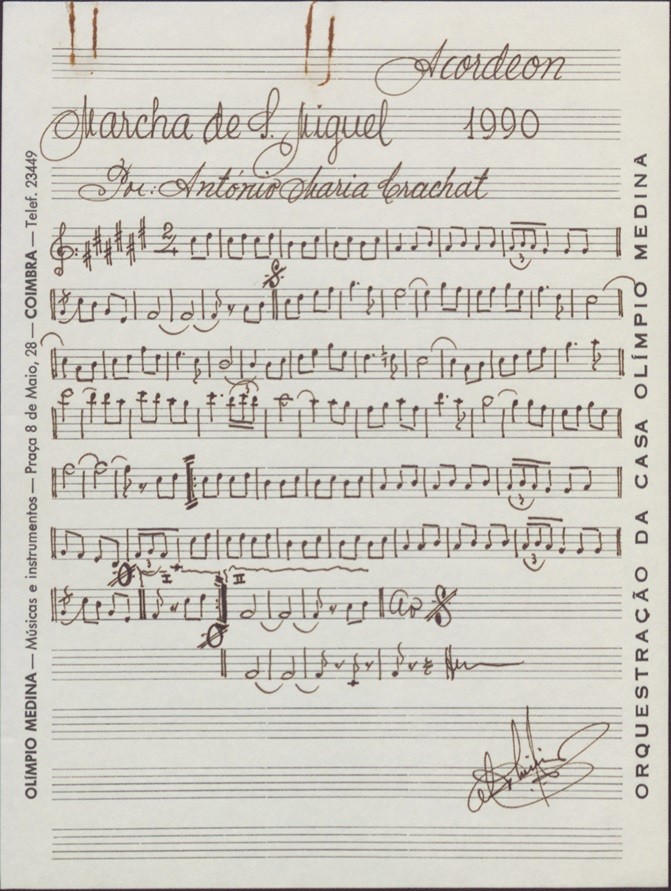 Acordeon
Marcha de S. Miguel 1990
Por: António Maria Crachat
2
2
3
3
3
3
I II
Ao
Fim
OLIMPIO MEDINA — Músicas e instrumentos — Praça 8 de Maio, 28 — COIMBRA — Telef. 23449
ORQUESTRAÇÃO DA CASA OLÍMPIO MEDINA